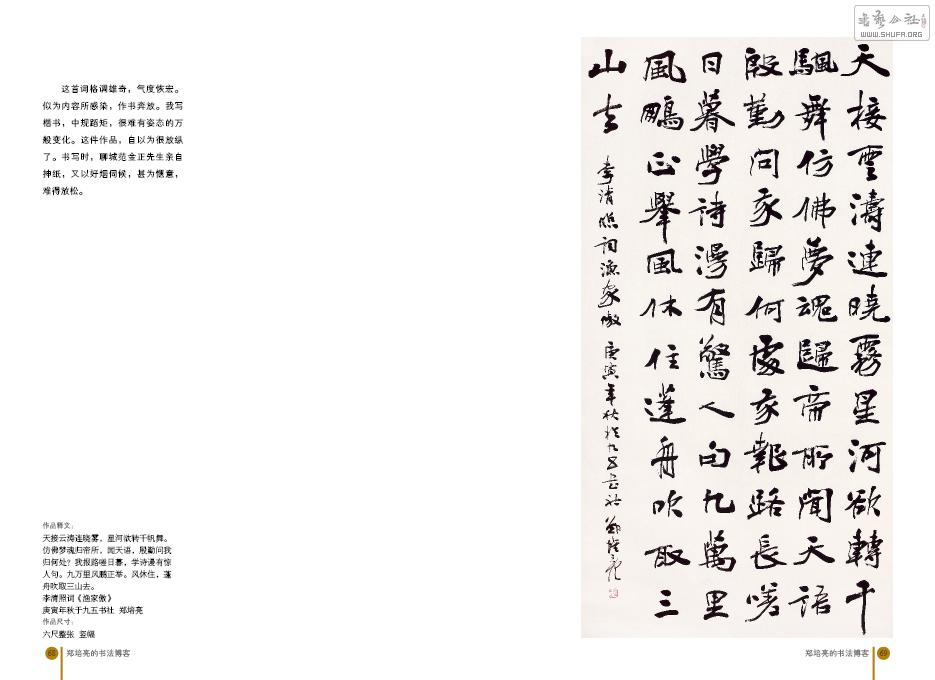 这首词格调雄奇，气度恢宏。
似为内容所感染，作书奔放。我写
楷书，中规蹈矩，很难有姿态的万
般变化。这件作品，自以为很放纵
了。书写时，聊城范金正先生亲自
抻纸，又以好烟伺候，甚为惬意，
难得放松。
作品释文：
天接云涛连晓雾，星河欲转千帆舞。
仿佛梦魂归帝所，闻天语，殷勤问我
归何处？我报路嗟日暮，学诗谩有惊
人句。九万里风鹏正举。风休住，蓬
舟吹取三山去。
李清照词《渔家傲》
庚寅年秋于九五书社 郑培亮
作品尺寸：
六尺整张 竖幅
68 郑培亮的书法博客
書藝公社
WWW.SHUFA.ORG
天接雲濤連曉霧星河欲轉千
颿舞仿佛夢魂歸帝所聞天語
殷勤問我歸何處我報路長嗟
日暮學詩謾有驚人句九萬里
風鵬正舉風休住蓬舟吹取三
山去
李清照词渔家傲 庚寅年秋於九五书社 郑培亮
郑培亮的书法博客 69